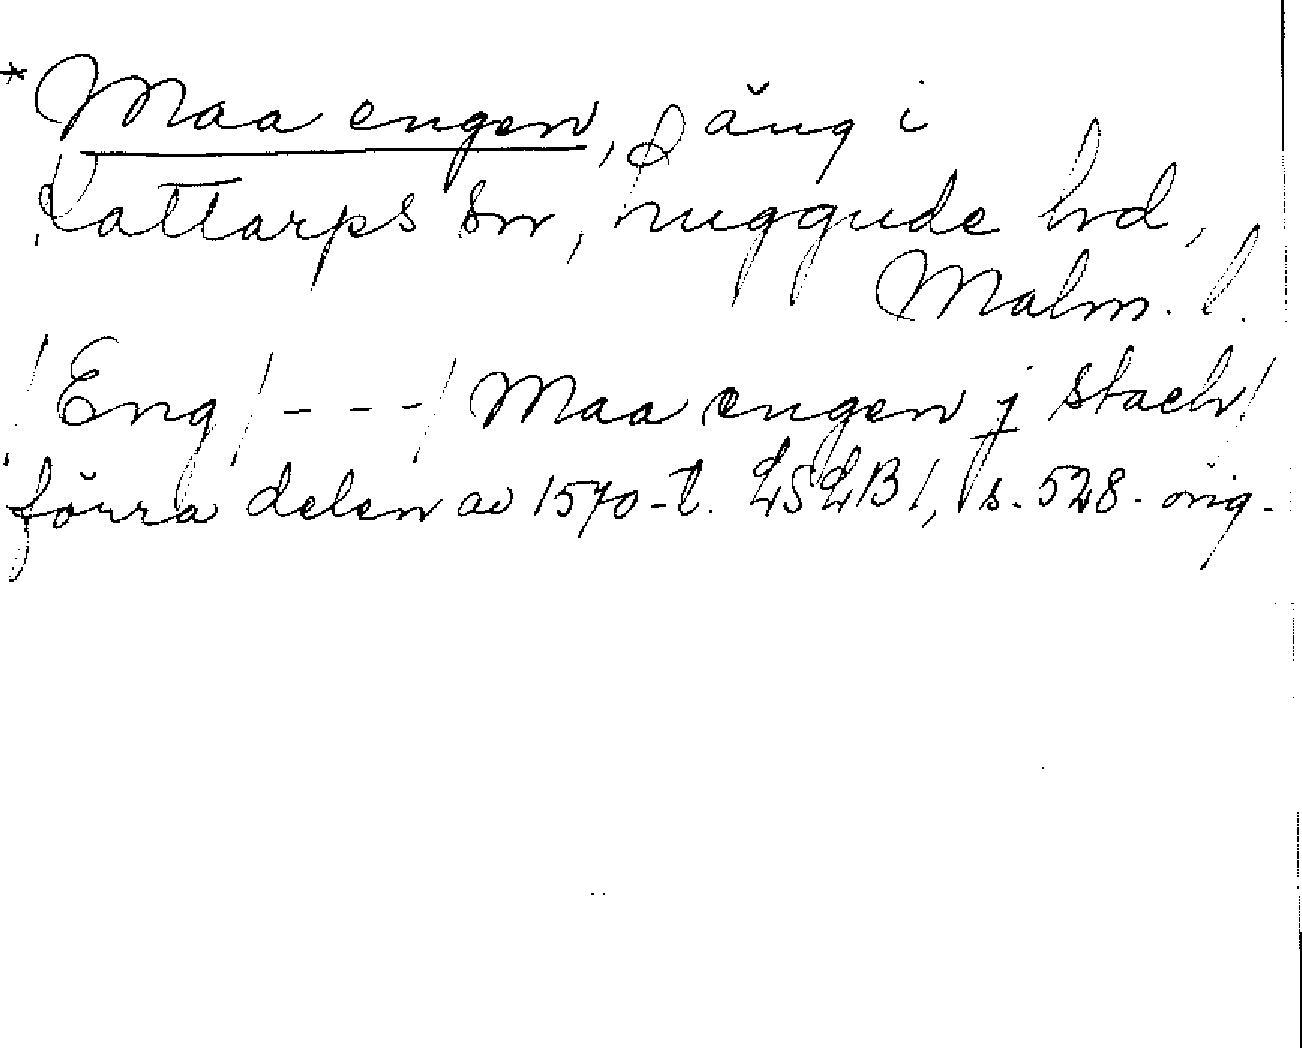 *Maa engen, f. äng i
Kattarps sn, Luggude hd,
Malm. l.
/Eng/ - - - / Maa engen j stach/
förra delen av 1570-t. LSLB 1, s. 528. orig.